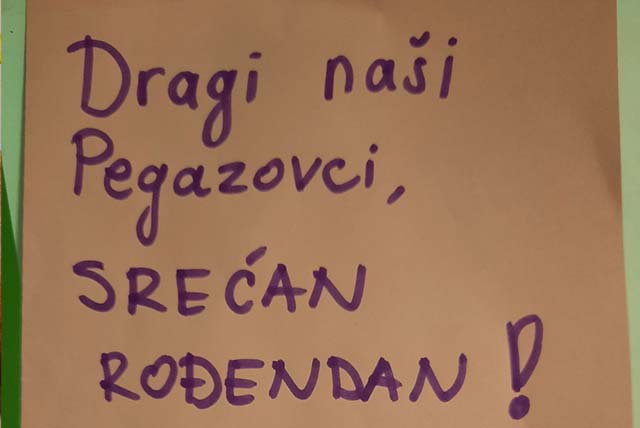 Dragi naši
Pegazovci,
SREĆAN
ROĐENDAN!